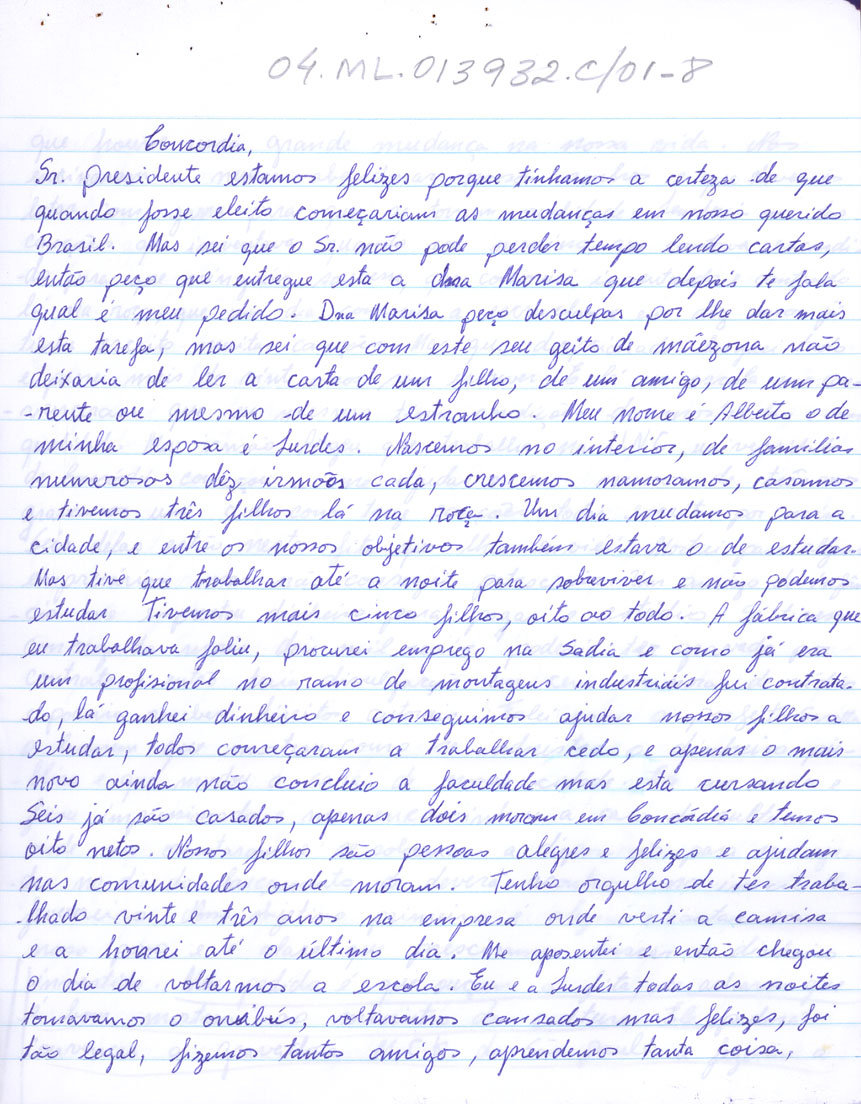 04.ML.013932.C/01-8
Concordia,
Sr. presidente estamos felizes porque tinhamos a certeza de que
quando fosse eleito começariam as mudanças em nosso querido
Brasil. Mas sei que o Sr. não pode perder tempo lendo cartas,
então peço que entregue esta a dna Marisa que depois te fala
qual é meu pedido. Dna Marisa peço desculpas por lhe dar mais
esta tarefa, mas sei que com este seu geito de mãezona não
deixaria de ler a carta de um filho, de um amigo, de um pa-
-rente ou mesmo de um estranho. Meu nome é Alberto o de
minha esposa é Lurdes. Nascemos no interior, de famílias
numerosas dêz irmãos cada, crescemos namoramos, casamos
e tivemos três filhos lá na roça. Um dia mudamos para a
cidade, e entre os nossos objetivos também estava o de estudar.
Mas tive que trabalhar até a noite para sobreviver e não podemos
estudar Tivemos mais cinco filhos, oito ao todo. A fábrica que
eu trabalhava faliu, procurei emprego na Sadia e como já era
um profisional no ramo de montagens industriais fui contrata-
do, lá ganhei dinheiro e conseguimos ajudar nossos filhos a
estudar, todos começaram a trabalhar cedo, e apenas o mais
novo ainda não concluio a faculdade mas esta cursando
Sêis já são casados, apenas dois moram em Concórdia e temos
oito netos. Nossos filhos são pessoas alegres e felizes e ajudam
nas comunidades onde moram. Tenho orgulho de ter traba-
-lhado vinte e três anos na empresa onde vesti a camisa
e a honrei até o último dia. Me aposentei e então chegou
o dia de voltarmos a escola. Eu e a Lurdes todas as noites
tomavamos o onibús, voltavamos cansados mas felizes, foi
tão legal, fizemos tantos amigos, aprendemos tanta coisa,